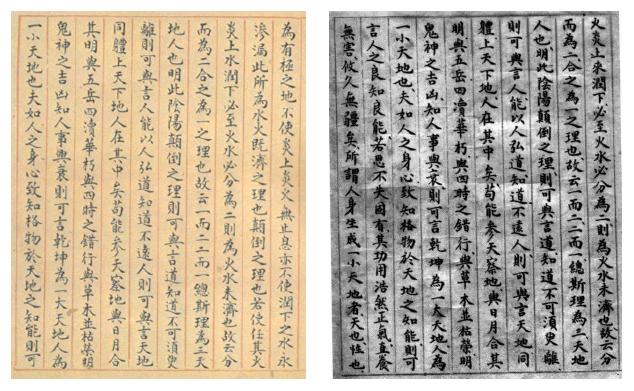 為有極之地不使炎上炎火無止息亦不使潤下之水永
滲漏此所為水火既濟之理也顛倒之理也若使任其火
炎上水潤下必至火水必分為二則為火水未濟也故云分
而為二合之為一之理也故云一而二二而一總斯理為三天
地人也明此陰陽顛倒之理則可與言道知道不可須臾
離則可與言人能以人弘道知道不遠人則可與言天地
同體上天下地人在其中矣苟能參天察地與日月合
其明與五岳四瀆華朽與四時之錯行與草木並枯榮明
鬼神之吉凶知人事興衰則可言乾坤為一大天地人為
一小天地也夫如人之身心致知格物於天地之知能則可
火炎上來潤下必至火水必分為二則為火水未濟也故云分
而為二合之為一之理也故云一而二二而一總斯理為三天地
人也明此陰陽顛倒之理則可與言道知道不可須臾離
則可與言人能以人弘道知道不遠人則可與言天地同
體上天下地人在其中矣苟能參天察地與日月合其
明與五岳四瀆華朽與四時之錯行與草木並枯榮明
鬼神之吉凶知人事興衰則可言乾坤為一大天地人為
一小天地也夫如人之身心致知格物於天地之知能則可
言人之良知良能若思不失固有其功用浩然正氣直養
無害攸久無疆矣所謂人身生成一小天地者天也性也